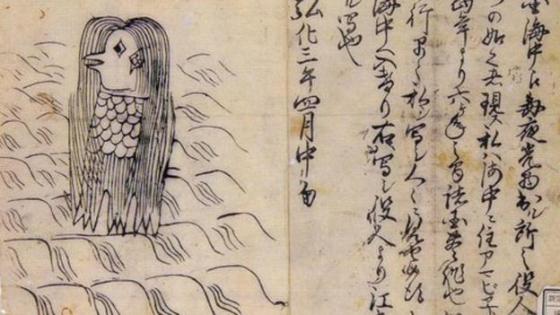 海中え毎夜光物出ル所之役人
づの如之者現ス私ハ海中ニ住アマビヱ
当年より六ケ年之間諸国豊作也
行早々私写シ人々ニ見セ候
海中へ入けり右写シ役人より江
写也
弘化三年四月中旬